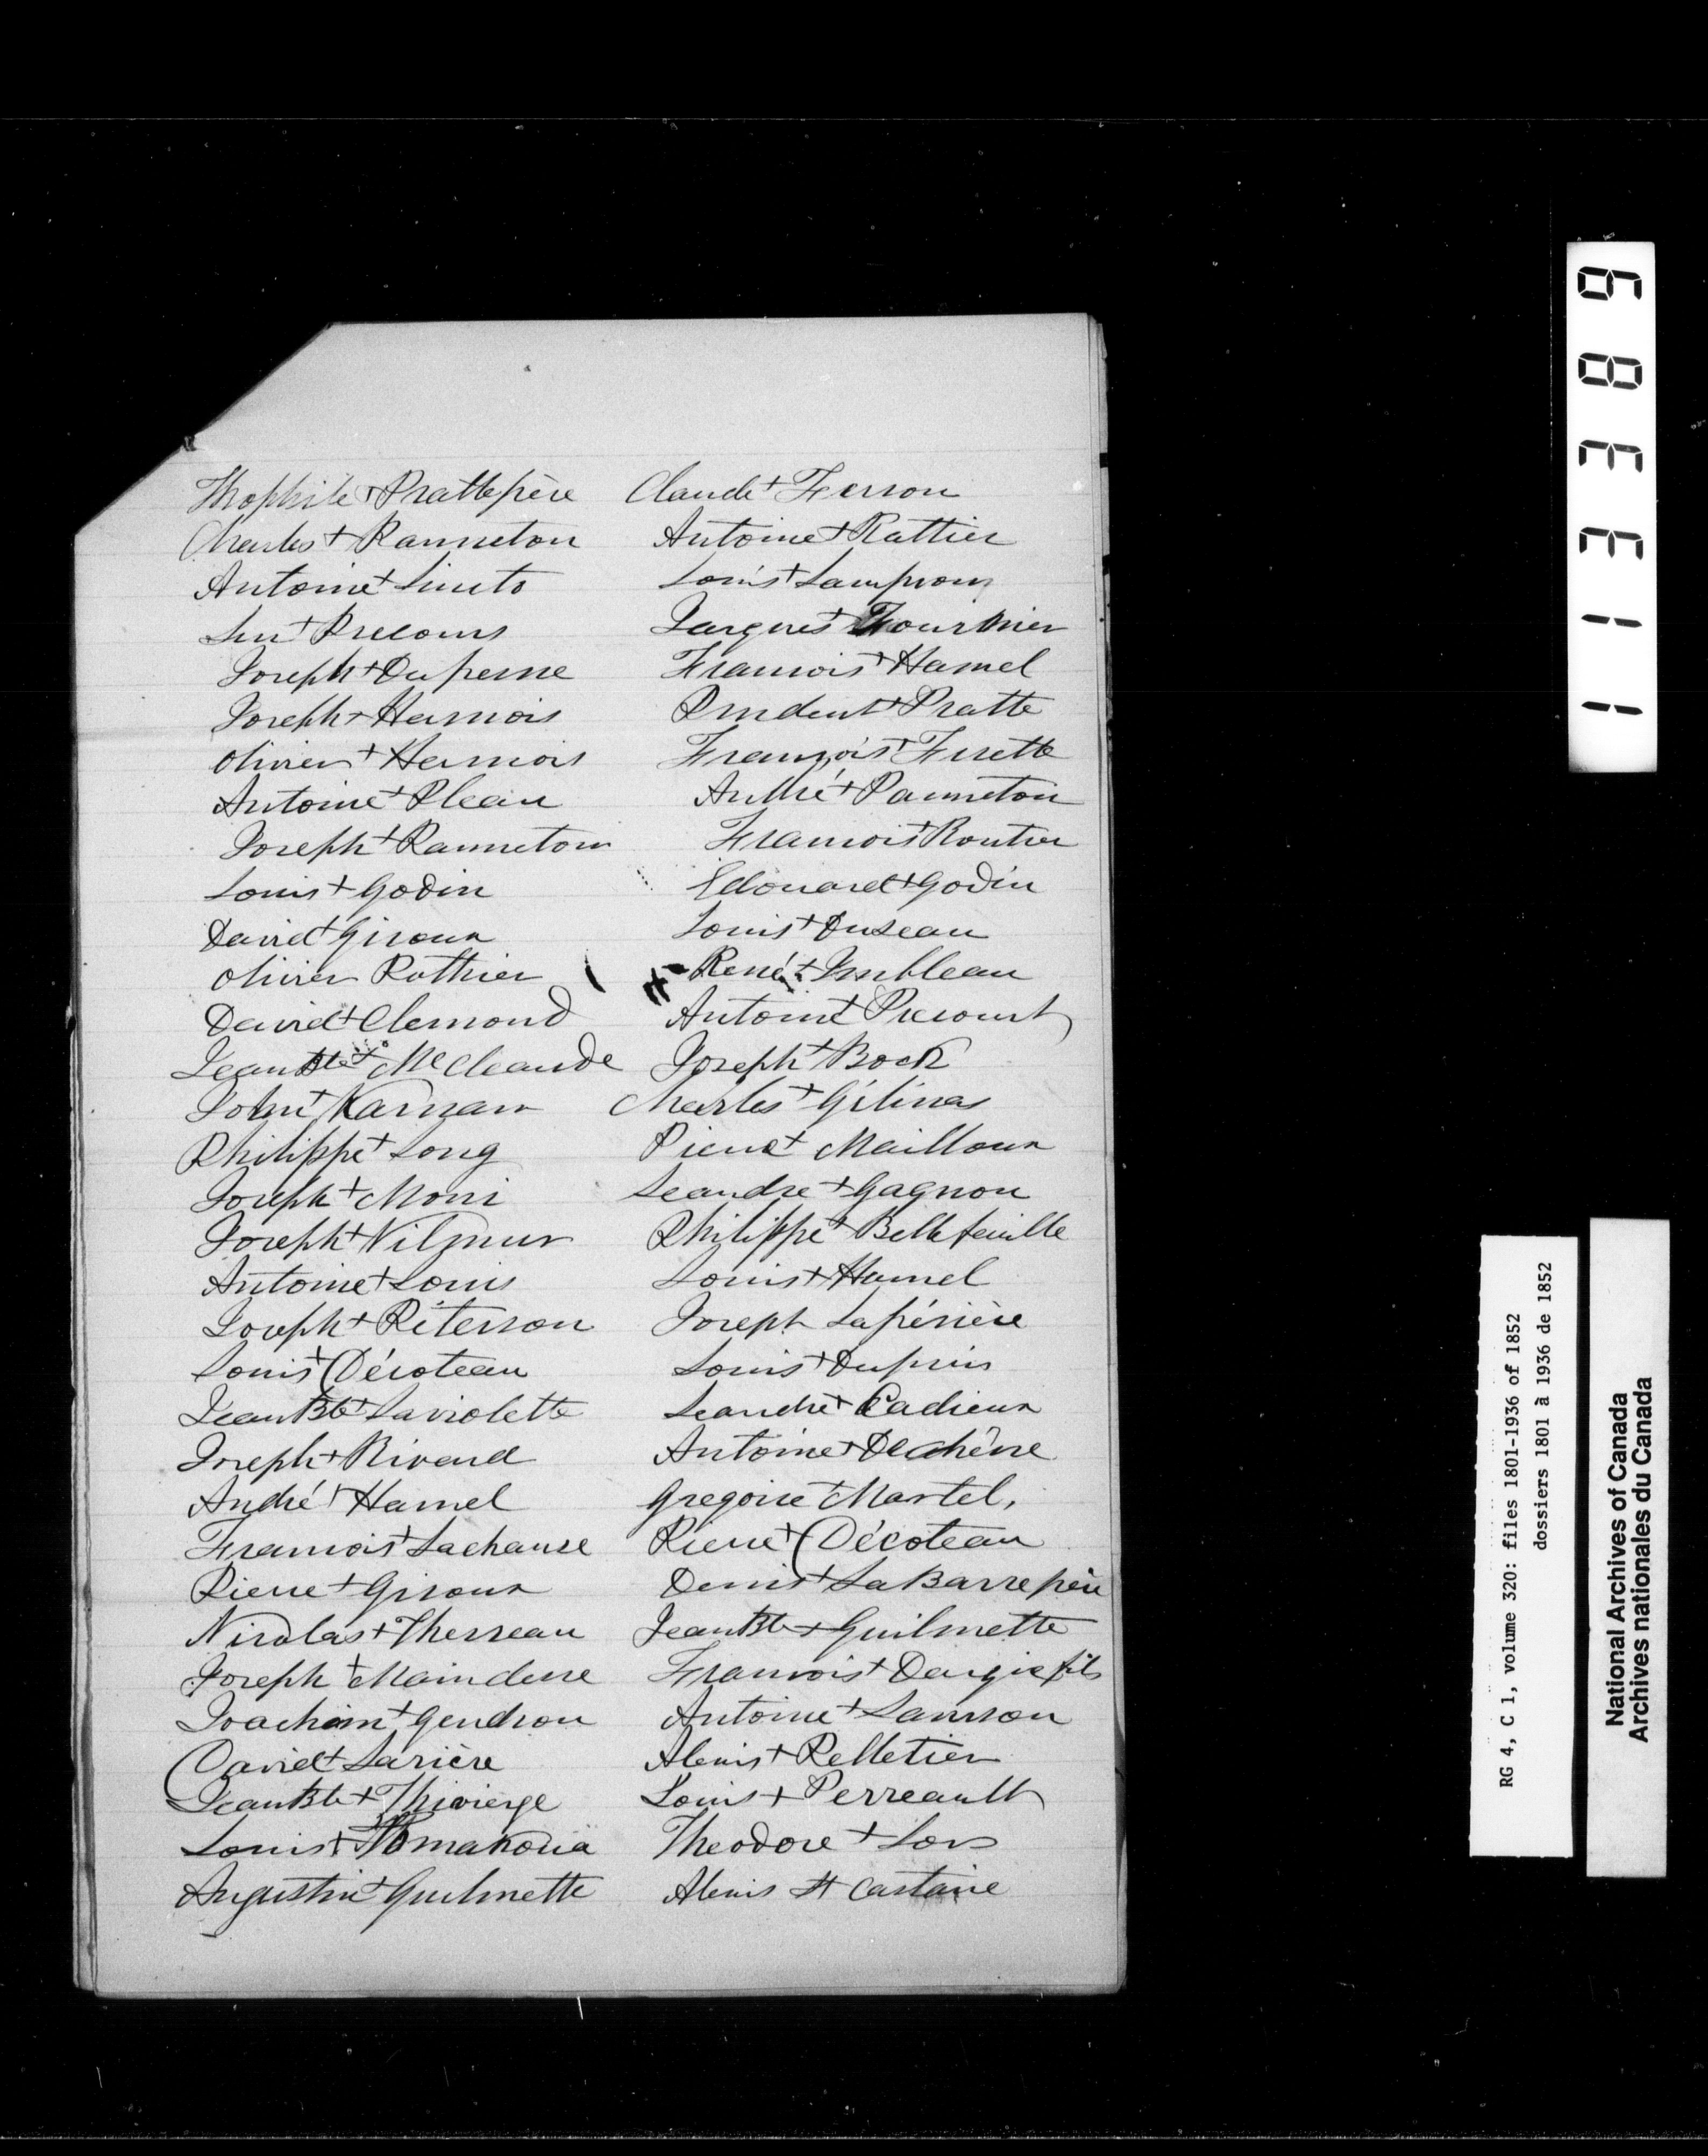 Théophile + Pratte père
Charles + Panneton
Antoine + Sinuto
Precours
Joseph + Dufresne
Joseph + Hernois
Olivier + Hernois
Antoine + Pleau
Joseph + Panneton
Louis + Godin
David + Giroux
Olivier Rothier
David + Clemond
Jean Bte + McCleaude
John + Karnan
Philippe + Long
Joseph + Moni
Joseph +
Antoine + Louis
Joseph + Péterson
Louis + Décoteau
Jean Bte + Laviolette
Joseph + Rivard
André + Hamel
Francois + Lachanse
Pierre + Giroux
Nicolas + Therreau
Joseph +
Joachim + Gendron
David + Larière
Jean Bte + Thivierge
Louis +
Augustin + Guilmette
Claude + Ferron
Antoine + Rattier
Louis + Lampron
Jacques + Fournier
Francois + Hamel
Prudent + Pratte
François + Firette
André + Panneton
Francois + Routier
Edouard + Godin
Louis + Duseau
René + Imbleau
Antoine + Precourt
Joseph + Bock
Charles + Gélinas
Pierre + Mailloux
Leandre + Gagnon
Philippe + Bellefeuille
Louis + Hamel
Joseph Lapérière
Louis + Dupuis
Leandre + Cadieux
Antoine + Dechêne
Gregoire + Martel,
Pierre + Décoteau
Denis + LaBarre père
Jean Bte + Guilmette
Francois + Dargie fils
Antoine + Samson
Alexis + Pelletier
Louis + Perreault
Theodore + Lors
Alexis + Castaine
113389
RG 4, C 1, volume 320: files 1801-1936 of 1852
dossiers 1801 à 1936 de 1852
National Archives of Canada
Archives nationales du Canada